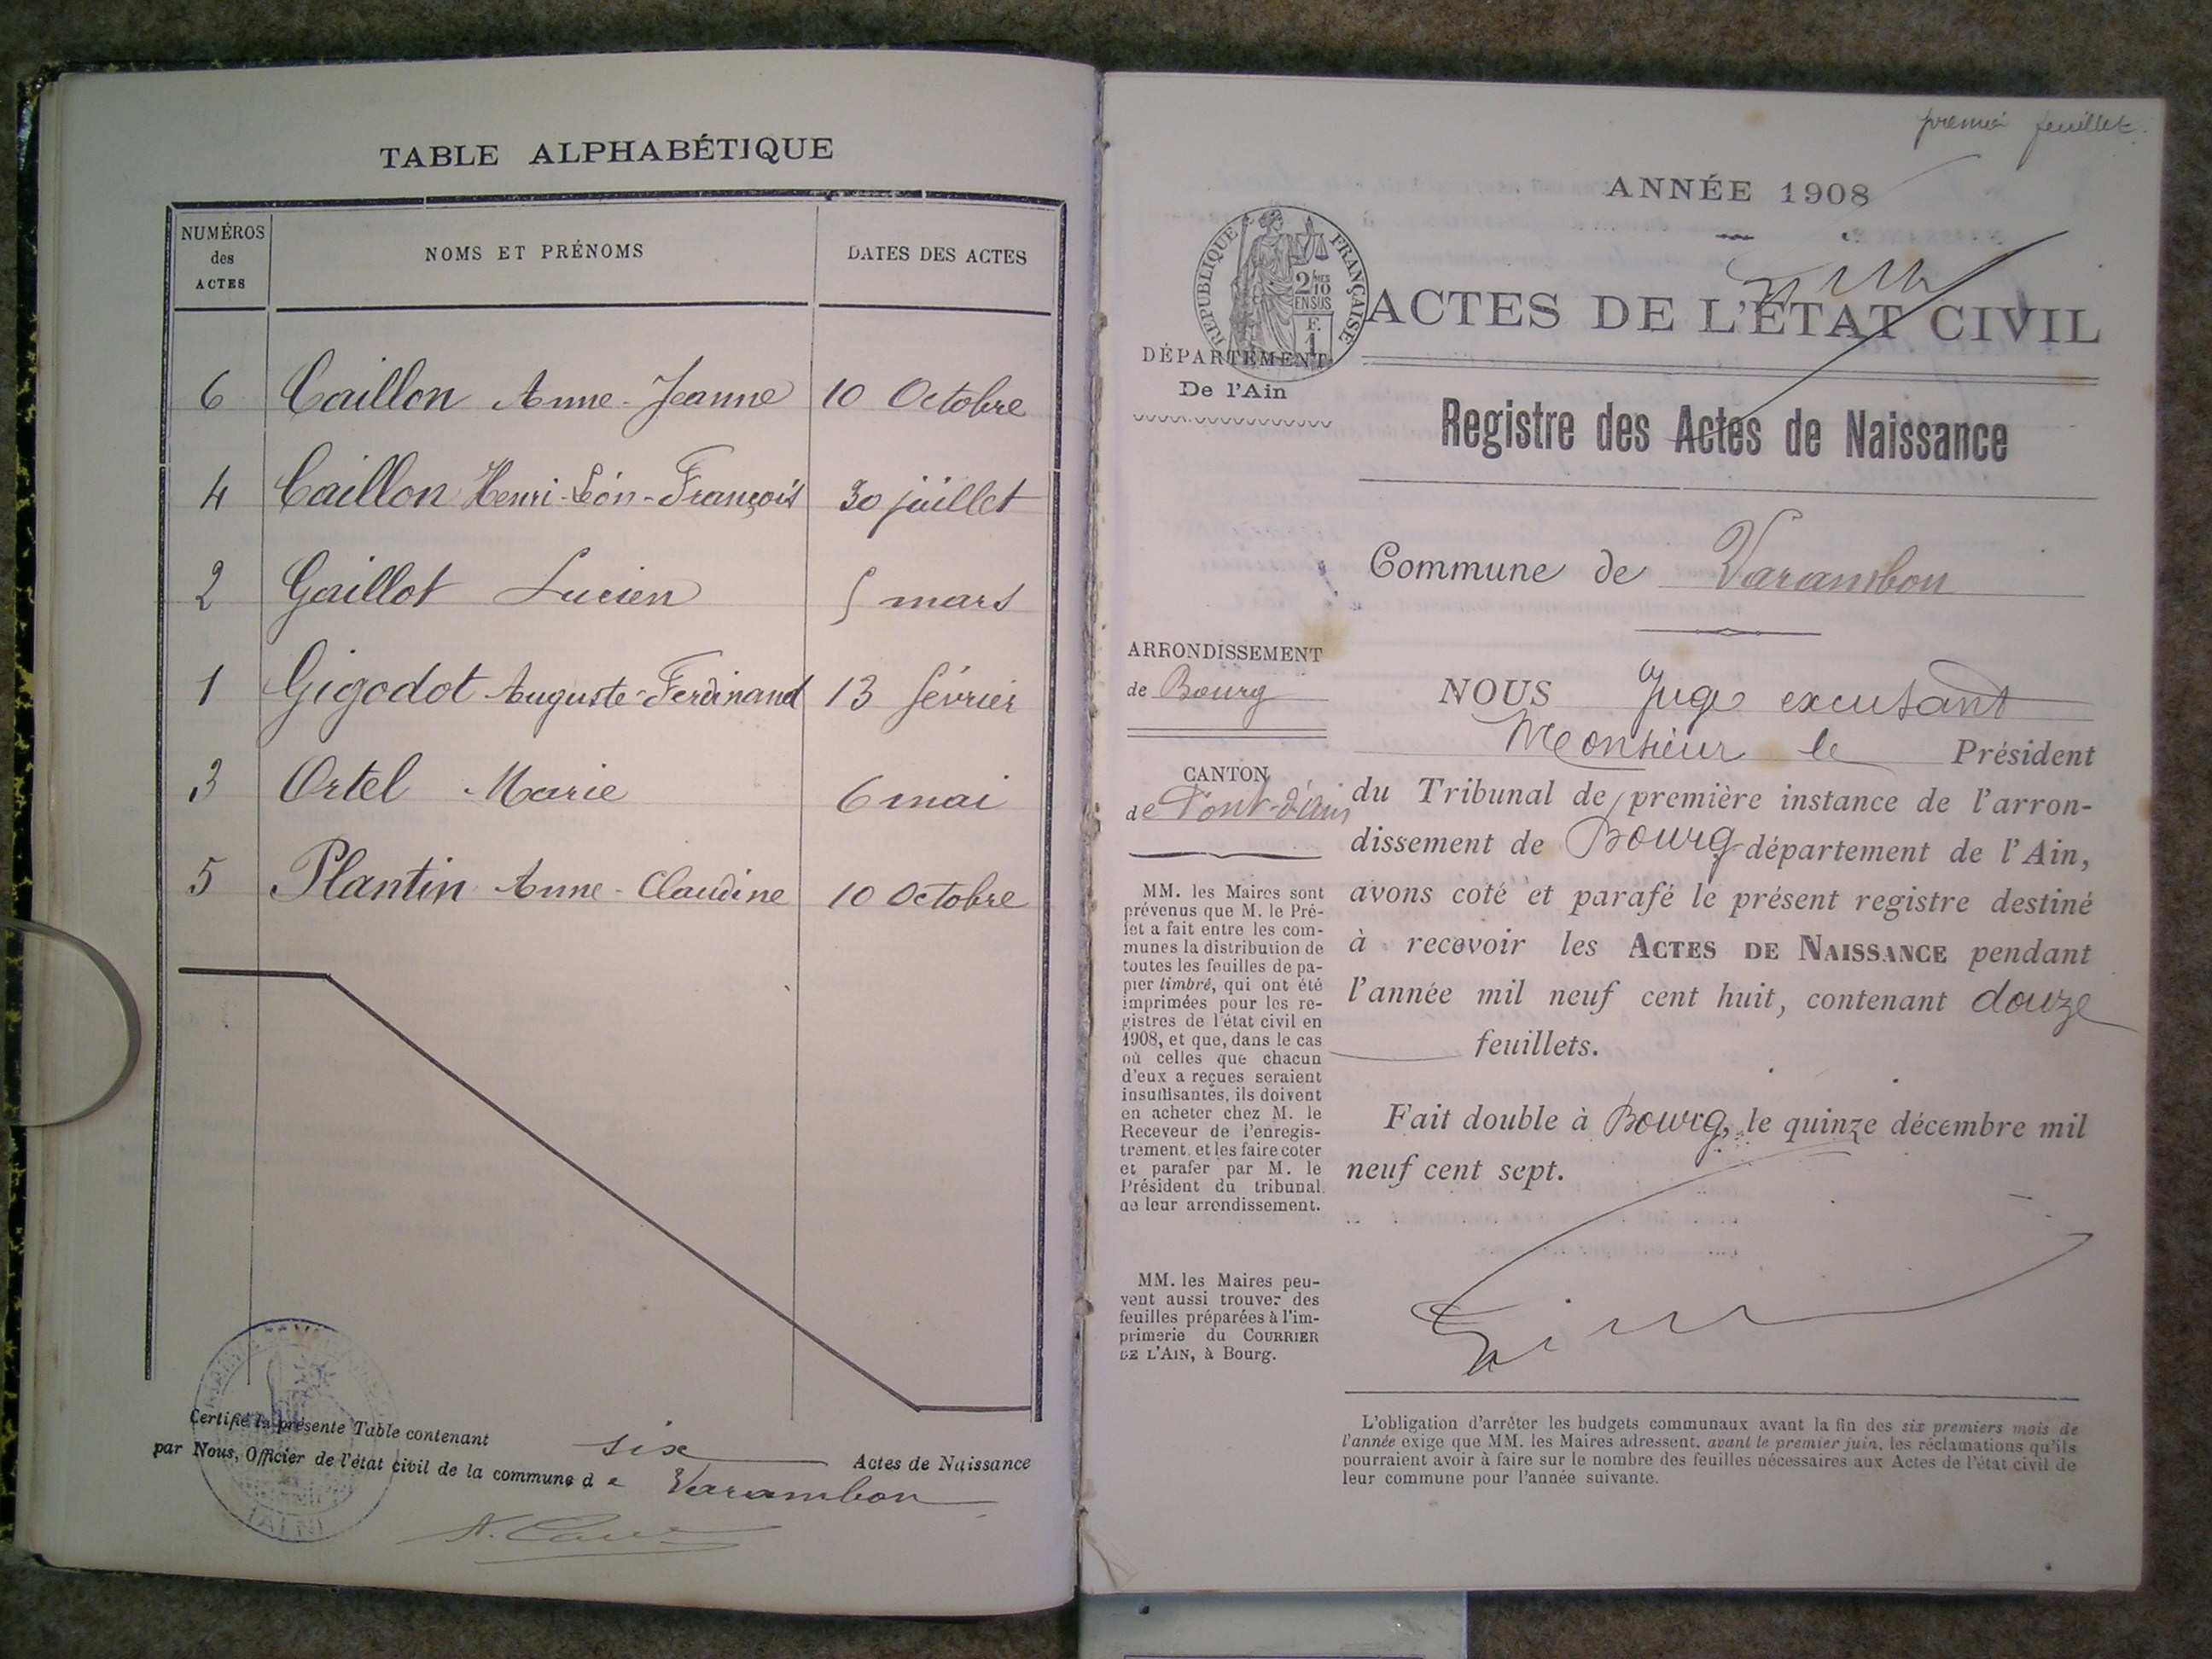 TABLE ALPHABÉTIQUE
NUMÉROS des ACTES
NOMS ET PRÉNOMS
DATES DES ACTES
6 Caillon Anne-Jeanne 10 Octobre
4 Caillon Henri-Léon-François 30 juillet
2 Gaillot Lucien 5 mars
1 Gigodot Auguste-Ferdinand 13 février
3 Ortel Marie 6 mai
5 Plantin Anne-Claudine 10 Octobre
Certifié la présente Table contenant six Actes de Naissance
par Nous, Officier de l'état civil de la commune de Varambon
(AIN)
premier feuillet.
ANNÉE 1908
RÉPUBLIQUE FRANÇAISE
2/10 MES
EN SUS
F.
1
ACTES DE L'ÉTAT CIVIL
DÉPARTEMENT
De l'Ain
Registre des Actes de Naissance
Commune de Varambon
ARRONDISSEMENT
de Bourg
CANTON
de Pont-d'Ain
MM. les Maires sont
prévenus que M. le Pré-
fet a fait entre les com-
munes la distribution de
toutes les feuilles de pa-
pier timbré, qui ont été
imprimées pour les re-
gistres de l'état civil en
1908, et que, dans le cas
où celles que chacun
d'eux a reçues seraient
insuffisantes, ils doivent
en acheter chez M. le
Receveur de l'enregis-
trement, et les faire coter
et parafer par M. le
Président du tribunal
de leur arrondissement.
MM. les Maires peu-
vent aussi trouver des
feuilles préparées à l'im-
primerie du COURRIER
DE L'AIN, à Bourg.
NOUS Juge excusant
Monsieur le Président
du Tribunal de première instance de l'arron-
dissement de Bourg département de l'Ain,
avons coté et parafé le présent registre destiné
à recevoir les ACTES DE NAISSANCE pendant
l'année mil neuf cent huit, contenant douze
feuillets.
Fait double à Bourg, le quinze décembre mil
neuf cent sept.
L'obligation d'arrêter les budgets communaux avant la fin des six premiers mois de
l'année exige que MM. les Maires adressent, avant le premier juin, les réclamations qu'ils
pourraient avoir à faire sur le nombre des feuilles nécessaires aux Actes de l'état civil de
leur commune pour l'année suivante.